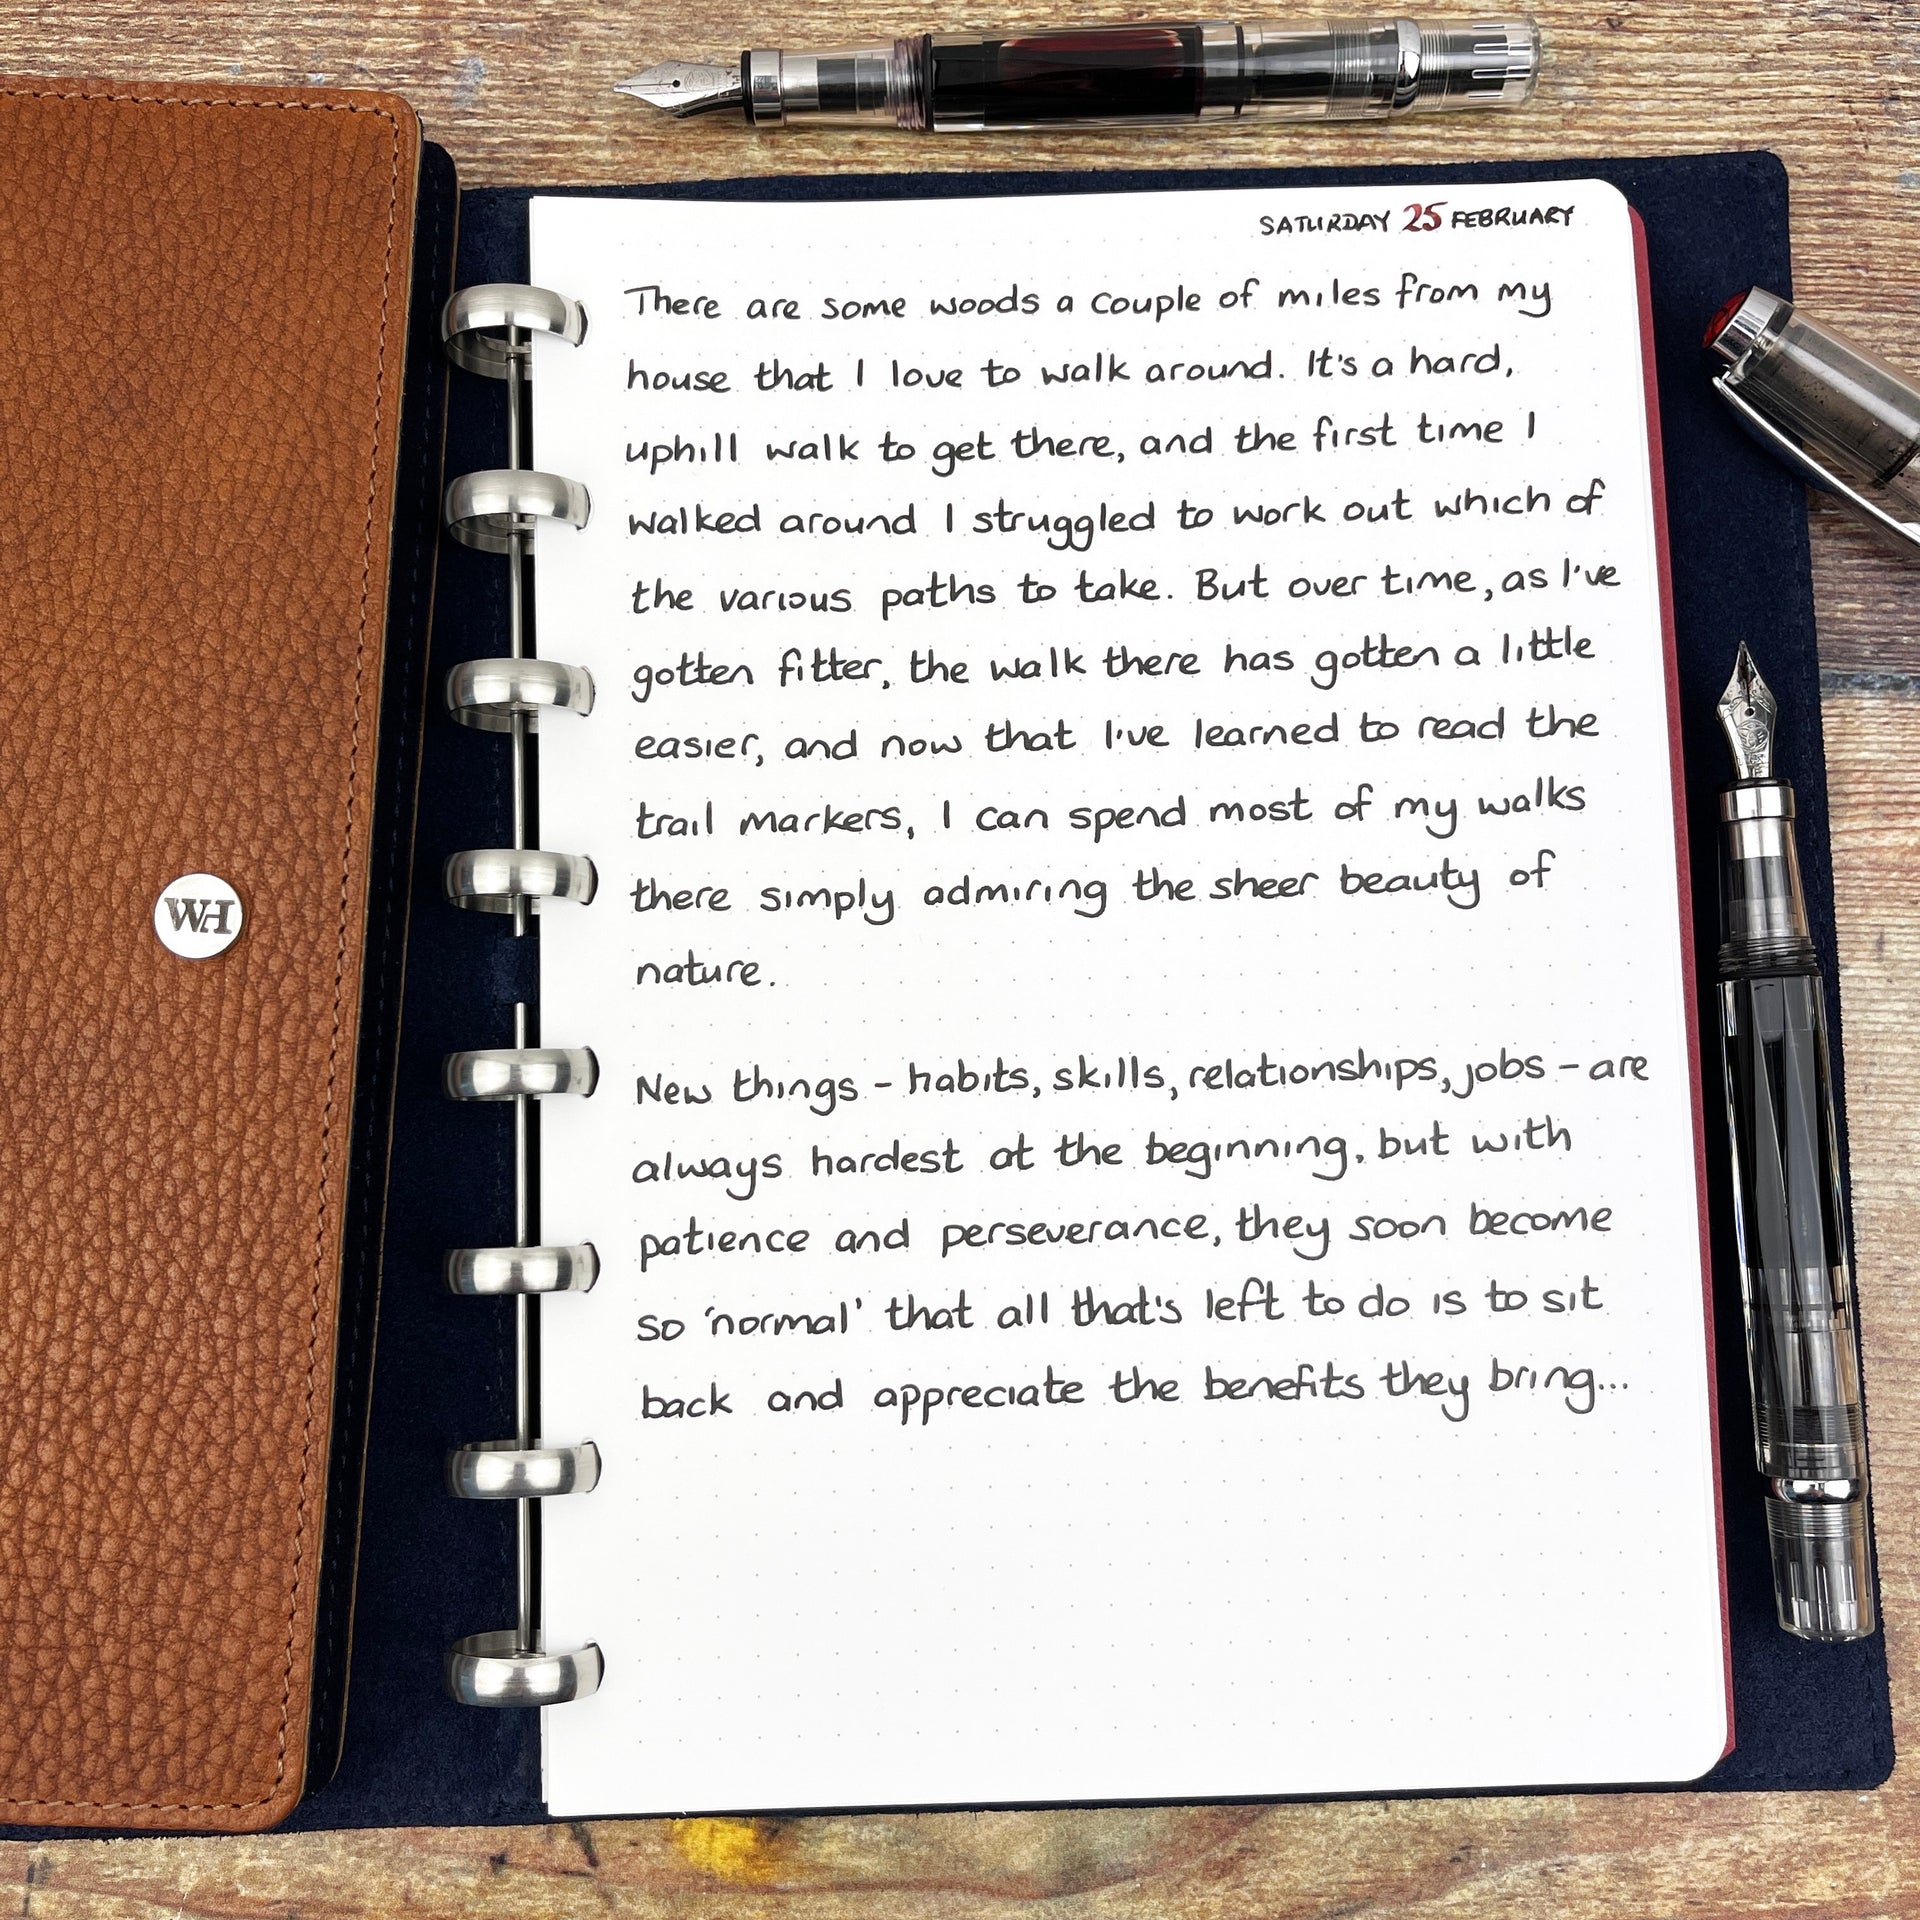 SATURDAY 25 FEBRUARY
There are some woods a couple of miles from my
house that I love to walk around. It's a hard,
uphill walk to get there, and the first time I
walked around I struggled to work out which of
the various paths to take. But over time, as I've
gotten fitter, the walk there has gotten a little
easier, and now that I've learned to read the
trail markers, I can spend most of my walks
there simply admiring the sheer beauty of
nature.
New things - habits, skills, relationships, jobs - are
always hardest at the beginning, but with
patience and perseverance, they soon become
so 'normal' that all that's left to do is to sit
back and appreciate the benefits they bring...
WH